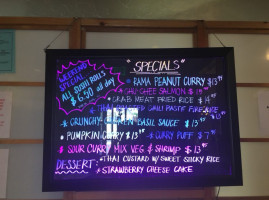 WEEKEND
SPECIAL
ALL SUSHI ROLLS
$6.50 all day
"SPECIALS"
RAMA PEANUT CURRY $13
CHU CHEE SALMON
CRAB MEAT FRIED RICE $14
CRUNGHY BASIL SAUCE $13
PUMPKIN CURRY $13
CURRY PUFF $7
SOUR CURRY MIX VEG & SHRIMP $13
DESSERT:
THAI CUSTARD W/ SWEET STICKY RICE
STRAWBERRY CHEESE CAKE